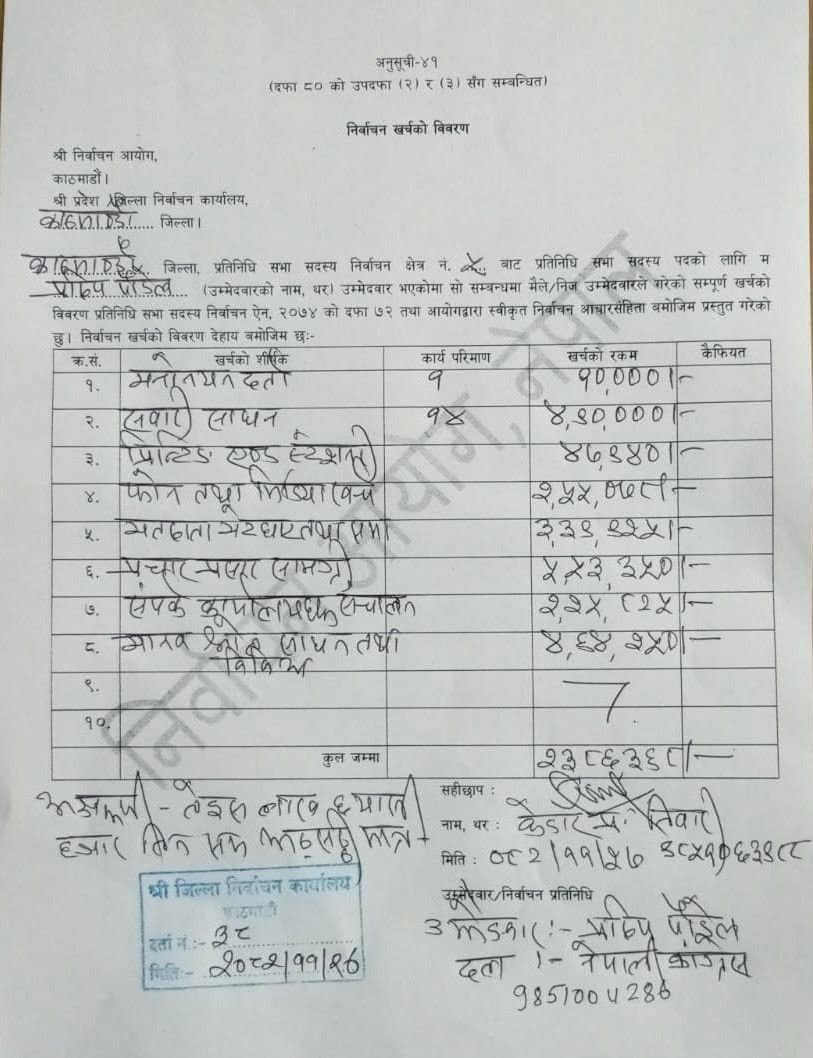 अनुसूची-४१
(दफा ८० को उपदफा (२) र (३) सँग सम्बन्धित)
निर्वाचन खर्चको विवरण
श्री निर्वाचन आयोग,
काठमाडौं।
श्री प्रदेश /जिल्ला निर्वाचन कार्यालय,
काठमाण्डौ..... जिल्ला।
काठमाण्डौ.. जिल्ला, प्रतिनिधि सभा सदस्य निर्वाचन क्षेत्र नं. ५.. बाट प्रतिनिधि सभा सदस्य पदको लागि म
प्रदिप पौडेल... (उम्मेदवारको नाम, थर) उम्मेदवार भएकोमा सो सम्बन्धमा मैले/निज उम्मेदवारले गरेको सम्पूर्ण खर्चको
विवरण प्रतिनिधि सभा सदस्य निर्वाचन ऐन, २०७४ को दफा ७२ तथा आयोगद्वारा स्वीकृत निर्वाचन आचारसंहिता बमोजिम प्रस्तुत गरेको
छु। निर्वाचन खर्चको विवरण देहाय बमोजिम छः-
क्र.सं. खर्चको शीर्षक कार्य परिमाण खर्चको रकम कैफियत
१. मनोनयन दर्ता १ १०,०००।-
२. सवारी साधन १४ ४,९०,०००।-
३. प्रिन्टिङ एण्ड स्टेशनरी ४७,९४०।-
४. फोन तथा मिडिया खर्च २,५५,०७८।-
५. मतदाता तथा सभा ३,३९,९२५।-
६. प्रचार प्रसार सामग्री ५,५३,३५०।-
७. संपर्क कार्यालय संचालन २,२५,८२५।-
८. मानव श्रोत साधन तथा विविध ४,६४,२५०।-
९.
१०.
कुल जम्मा २३८६३६८।-
अक्षरूपी - तेइस लाख छयासी
हजार तिन सय अठ्सठ्ठी मात्र
सहीछाप :
नाम, थर : केदार प्र. तिवारी
मिति : ०८२/११/२७ ९८५१०६३९८८
उम्मेदवार/निर्वाचन प्रतिनिधि
उम्मेदवार :- प्रदिप पौडेल
दल :- नेपाली काँग्रेस
9851004286
श्री जिल्ला निर्वाचन कार्यालय
काठमाडौं
दर्ता नं.:- ३८
मिति:- २०८२/११/२७
निर्वाचन आयोग, नेपाल